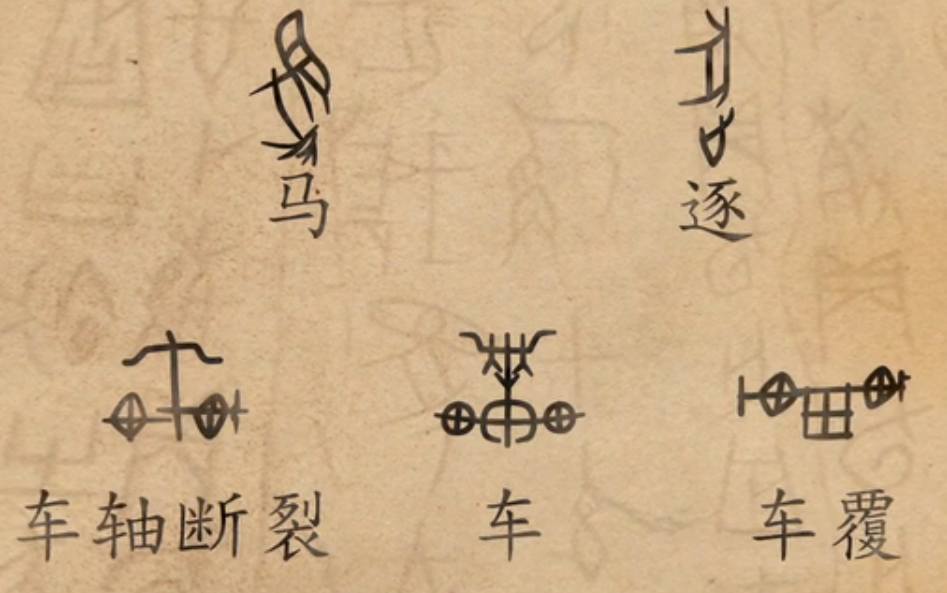 马 逐
车轴断裂 车 车覆